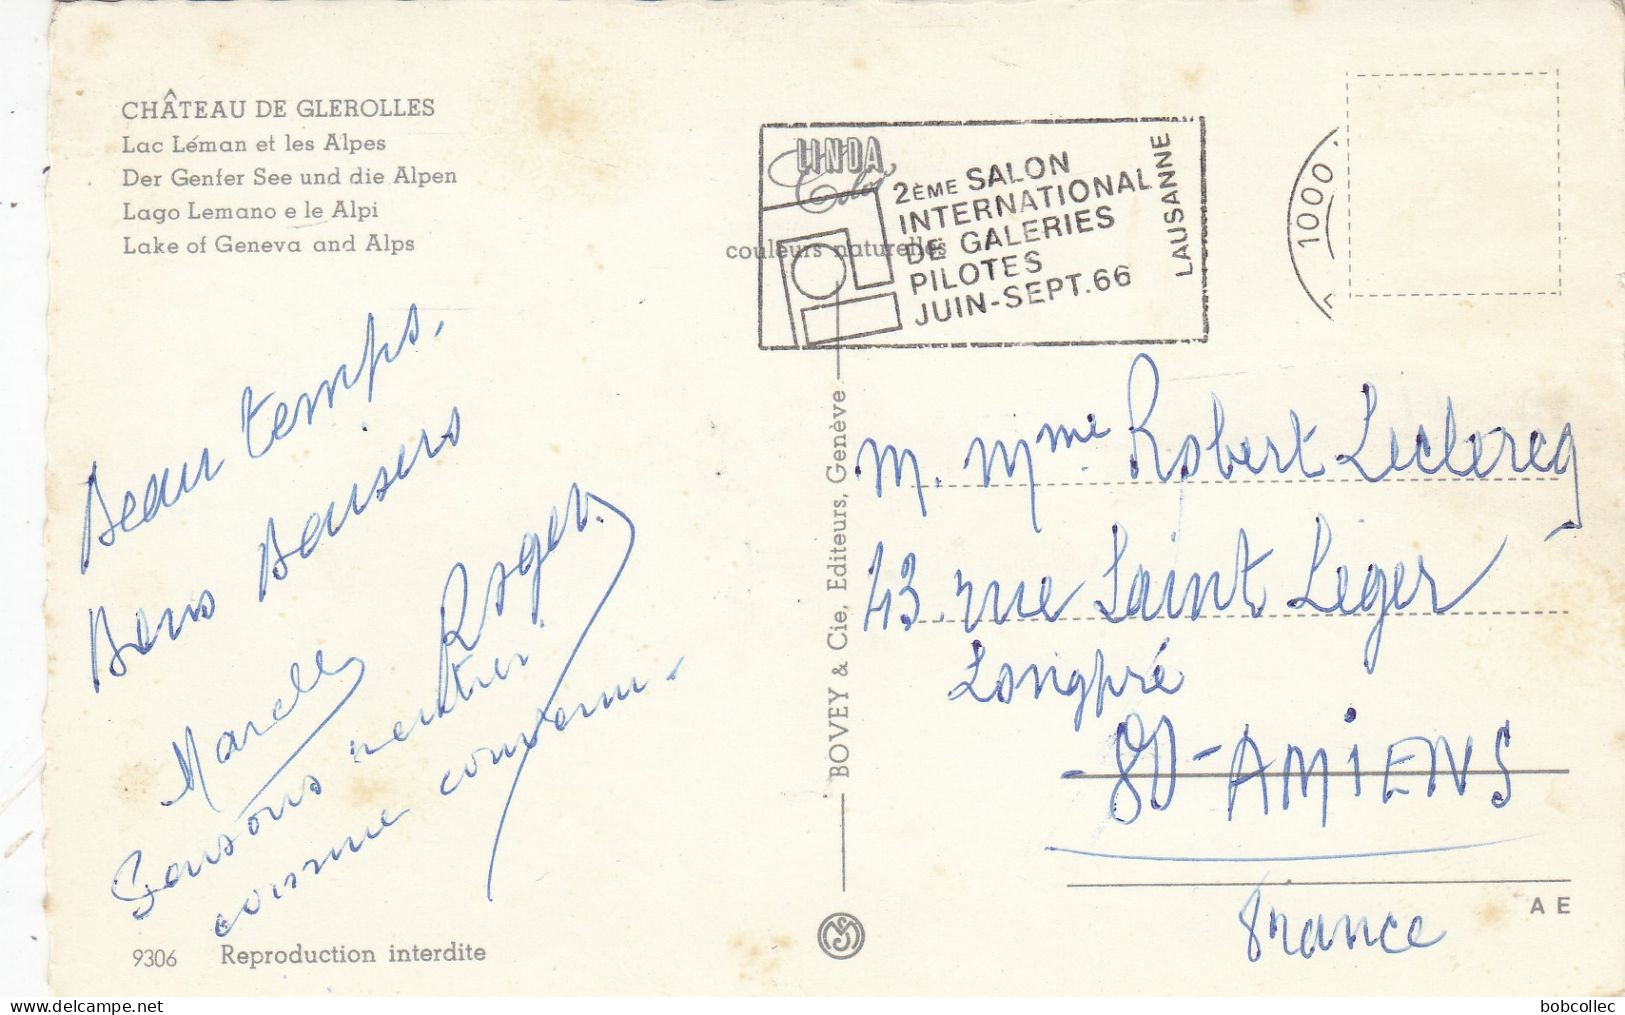 CHÂTEAU DE GLEROLLES
Lac Léman et les Alpes
Der Genfer See und die Alpen
Lago Lemano e le Alpi
Lake of Geneva and Alps
LINDA
Color
couleurs naturelles
2ÈME SALON
INTERNATIONAL
DE GALERIES
PILOTES
JUIN-SEPT. 66
LAUSANNE
1000
Beau temps.
Bons Baisers
Roger.
Marcelle
Gensous
comme convenu.
BOVEY & Cie, Editeurs, Genève
M. Mme Robert Leclercq
43. rue Saint Leger
Longpré
-80-AMIENS
France
A E
9306 Reproduction interdite
bobcollec